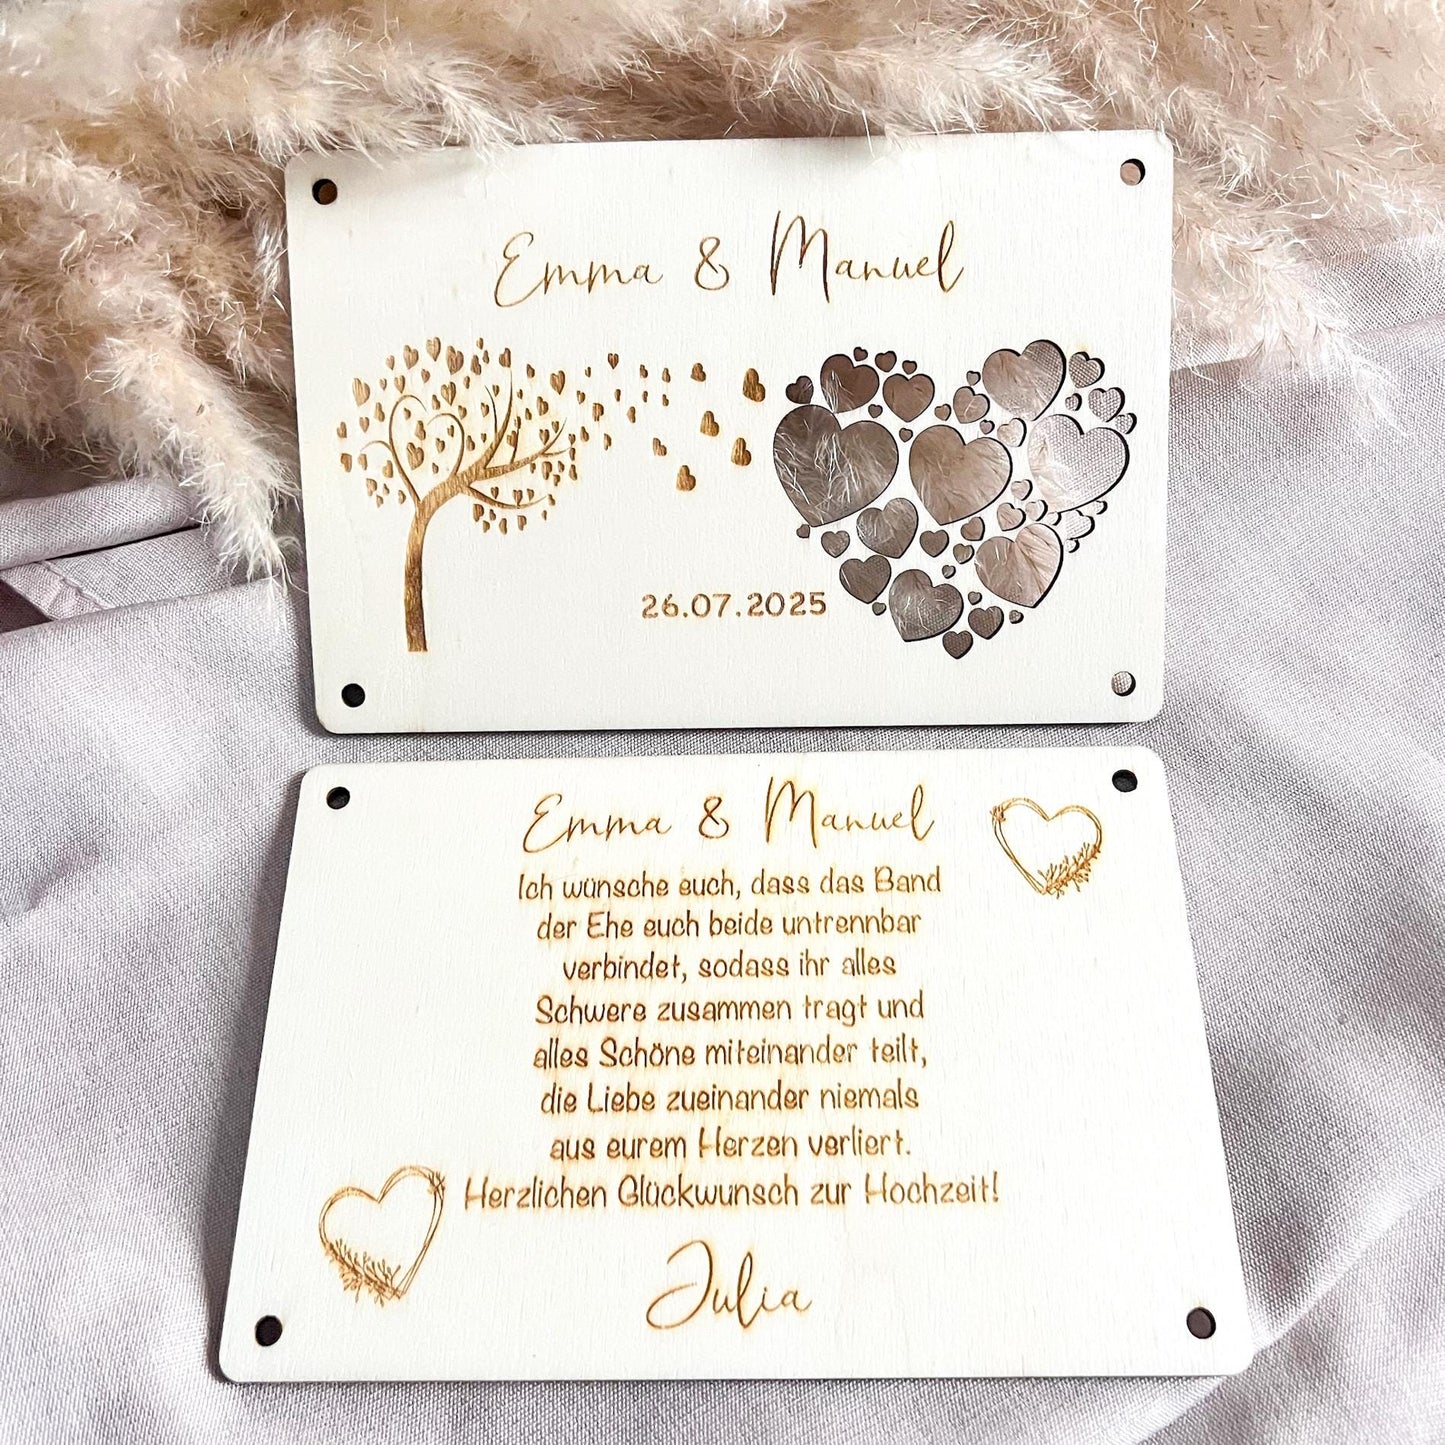 Emma & Manuel
26.07.2025
Emma & Manuel
Ich wünsche euch, dass das Band
der Ehe euch beide untrennbar
verbindet, sodass ihr alles
Schwere zusammen tragt und
alles Schöne miteinander teilt,
die Liebe zueinander niemals
aus eurem Herzen verliert.
Herzlichen Glückwunsch zur Hochzeit!
Julia